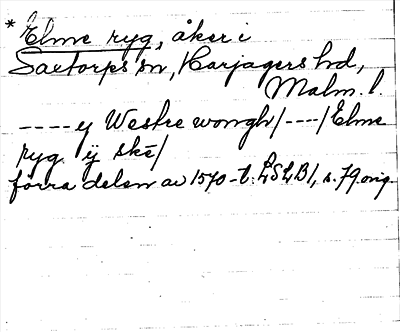 * Elme ryg, åker i
Saxtorps sn, Harjagers hd,
Malm. l.
---- y Westre wongh/----/Elme
ryg ÿ skē/
förra delen av 1570-t. LSLB1, s. 79 orig.